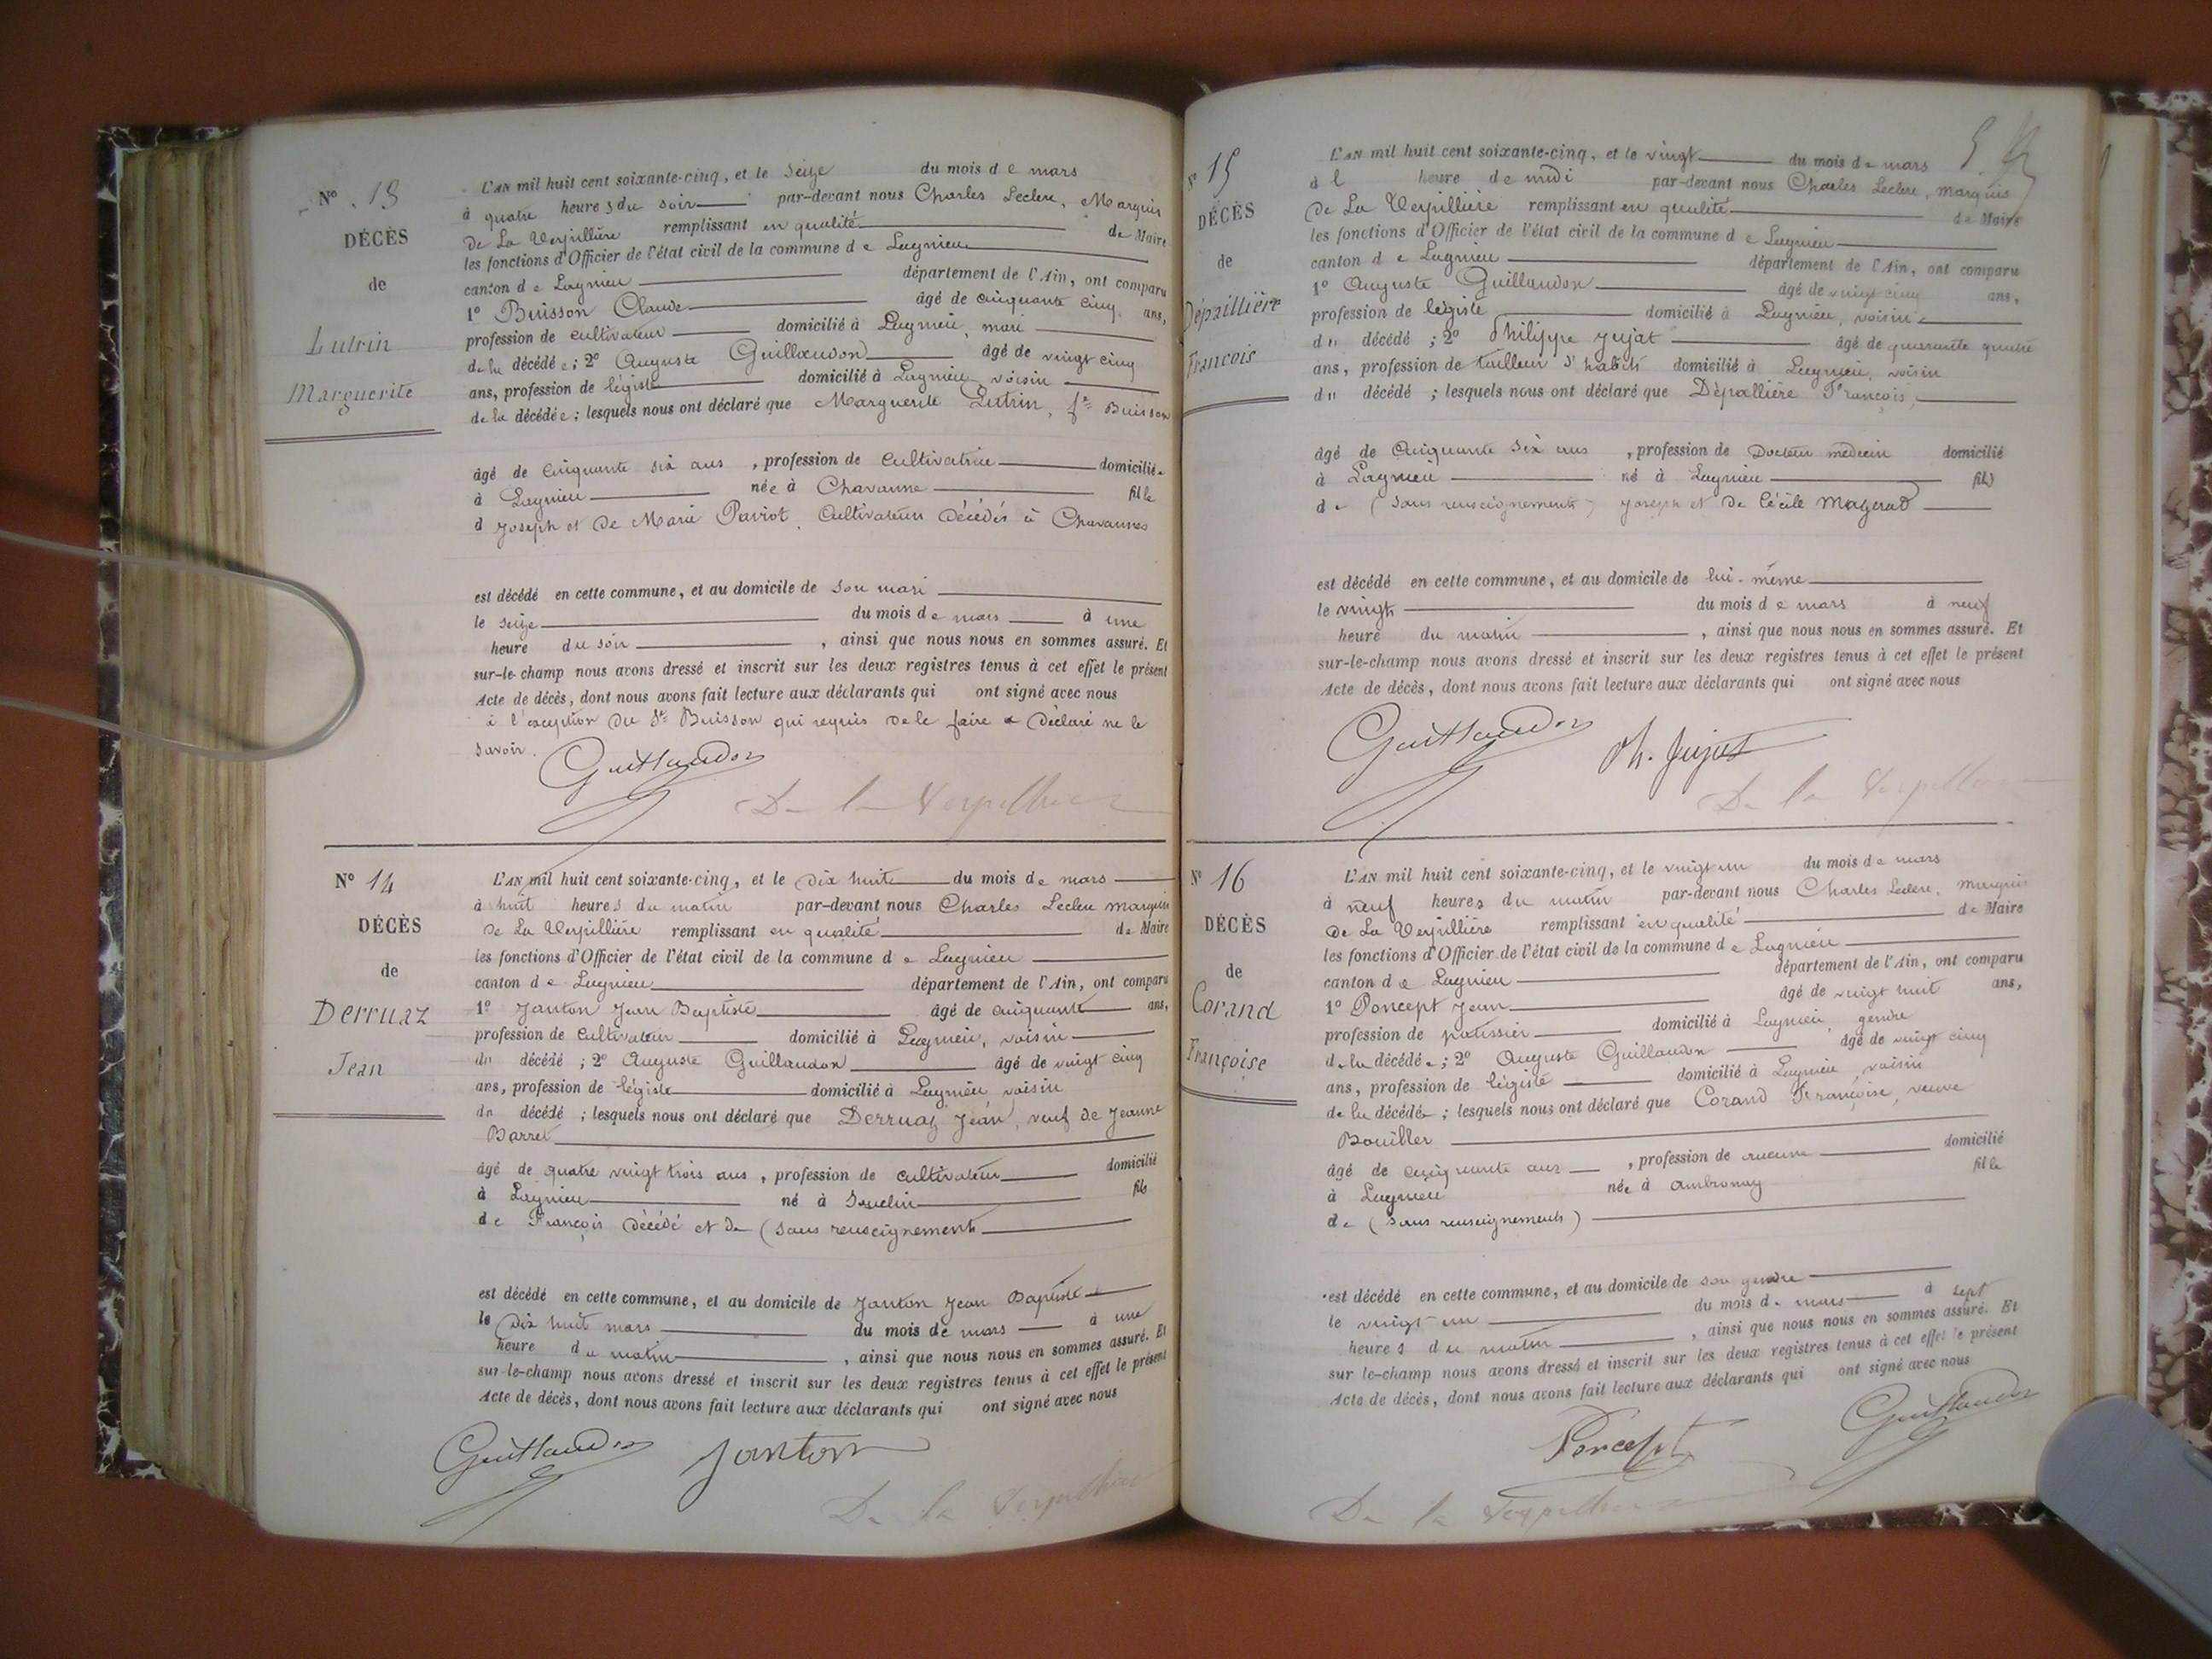 N° 13
DÉCÈS
de
Lutrin
Marguerite
L'AN mil huit cent soixante-cinq, et le Seize du mois de mars
à quatre heures du soir par-devant nous Charles Leclerc, Marquis
De La Verpillière remplissant en qualité de Maire
les fonctions d'Officier de l'état civil de la commune de Lagnieu
canton de Lagnieu département de l'Ain, ont comparu
1° Buisson Claude âgé de cinquante cinq ans,
profession de cultivateur domicilié à Lagnieu, mari
de la décédée; 2° Auguste Guillaudon âgé de vingt cinq
ans, profession de légiste domicilié à Lagnieu voisin
de la décédée; lesquels nous ont déclaré que Marguerite Lutrin, fe Buisson
âgé de Cinquante six ans, profession de Cultivatrice domiciliée
à Lagnieu née à Chavanne fille
d Joseph et De Marie Paviot, Cultivateurs Décédés à Chavannes
est décédé en cette commune, et au domicile de son mari
le seize du mois de mars à une
heure du soir, ainsi que nous nous en sommes assuré. Et
sur-le-champ nous avons dressé et inscrit sur les deux registres tenus à cet effet le présent
Acte de décès, dont nous avons fait lecture aux déclarants qui ont signé avec nous
à l'exception Du Sr Buisson qui requis de le faire a Déclaré ne le
savoir.
Guillaudon
De la Verpillière
N° 14
DÉCÈS
de
Derruaz
Jean
L'AN mil huit cent soixante-cinq, et le Dix huit du mois de mars
à huit heures du matin par-devant nous Charles Leclerc marquis
De La Verpillière remplissant en qualité de Maire
les fonctions d'Officier de l'état civil de la commune de Lagnieu
canton de Lagnieu département de l'Ain, ont comparu
1° Janton Jean Baptiste âgé de cinquante ans,
profession de Cultivateur domicilié à Lagnieu, voisin
du décédé; 2° Auguste Guillaudon âgé de vingt cinq
ans, profession de légiste domicilié à Lagnieu voisin
du décédé; lesquels nous ont déclaré que Derruaz Jean, veuf de Jeanne
Barret
âgé de quatre vingt trois ans, profession de cultivateur domicilié
à Lagnieu né à Souclin fils
de François Décédé et de (sans renseignements
est décédé en cette commune, et au domicile de Janton Jean Baptiste
le Dix huit mars du mois de mars à une
heure du matin, ainsi que nous nous en sommes assuré. Et
sur-le-champ nous avons dressé et inscrit sur les deux registres tenus à cet effet le présent
Acte de décès, dont nous avons fait lecture aux déclarants qui ont signé avec nous
Guillaudon Janton
De la Verpillière
N° 15
DÉCÈS
de
Dépaillière
François
L'AN mil huit cent soixante-cinq, et le vingt du mois de mars
à l heure de midi par-devant nous Charles Leclerc, marquis
De La Verpillière remplissant en qualité de Maire
les fonctions d'Officier de l'état civil de la commune de Lagnieu
canton de Lagnieu département de l'Ain, ont comparu
1° Auguste Guillaudon âgé de vingt cinq ans,
profession de légiste domicilié à Lagnieu, voisin
du décédé; 2° Philippe Jujat âgé de quarante quatre
ans, profession de tailleur d'habits domicilié à Lagnieu, voisin
du décédé; lesquels nous ont déclaré que Dépallière François,
âgé de Cinquante six ans, profession de Docteur médecin domicilié
à Lagnieu né à Lagnieu fils
de (sans renseignements) Joseph et De Cécile Magerad
est décédé en cette commune, et au domicile de lui-même
le vingt du mois de mars à neuf
heure du matin, ainsi que nous nous en sommes assuré. Et
sur-le-champ nous avons dressé et inscrit sur les deux registres tenus à cet effet le présent
Acte de décès, dont nous avons fait lecture aux déclarants qui ont signé avec nous
Guillaudon Ph. Jujat
De la Verpillière
N° 16
DÉCÈS
de
Corand
Françoise
L'AN mil huit cent soixante-cinq, et le vingt un du mois de mars
à neuf heures du matin par-devant nous Charles Leclerc, marquis
De La Verpillière remplissant en qualité de Maire
les fonctions d'Officier de l'état civil de la commune de Lagnieu
canton de Lagnieu département de l'Ain, ont comparu
1° Poncept Jean âgé de vingt huit ans,
profession de patissier domicilié à Lagnieu, gendre
de la décédée; 2° Auguste Guillaudon âgé de vingt cinq
ans, profession de légiste domicilié à Lagnieu, voisin
de la décédée; lesquels nous ont déclaré que Corand Françoise, veuve
Bouiller
âgé de cinquante ans, profession de aucune domicilié
à Lagnieu née à Ambronay fille
de (sans renseignements)
est décédé en cette commune, et au domicile de son gendre
le vingt-un du mois de mars à sept
heures du matin, ainsi que nous nous en sommes assuré. Et
sur le-champ nous avons dressé et inscrit sur les deux registres tenus à cet effet le présent
Acte de décès, dont nous avons fait lecture aux déclarants qui ont signé avec nous
Poncept Guillaudon
De la Verpillière